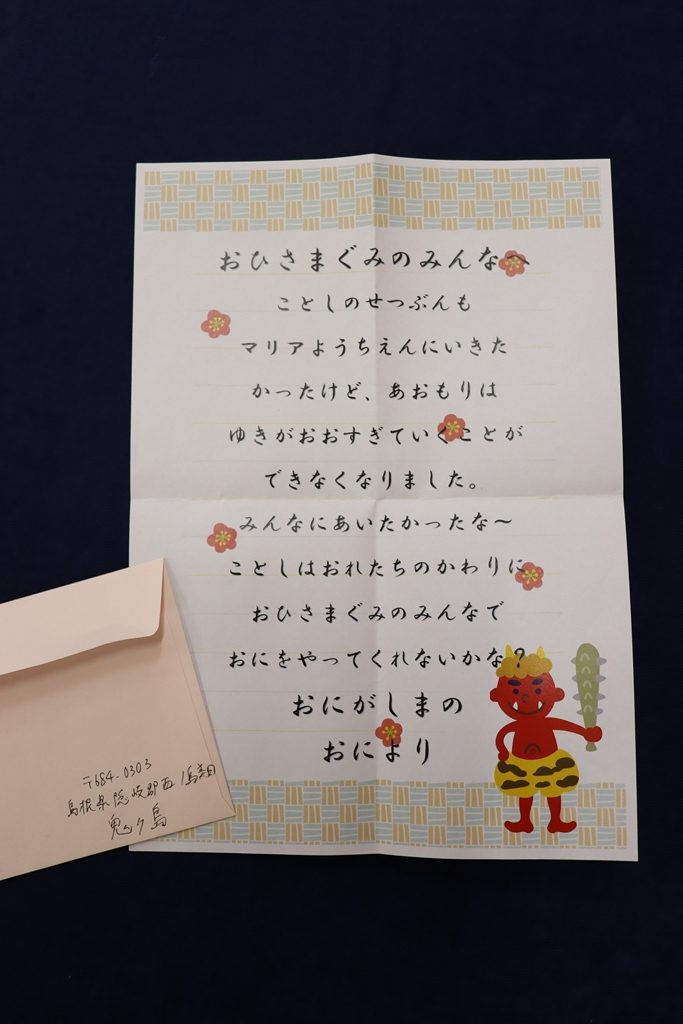 おひさまぐみのみんなへ
ことしのせつぶんも
マリアようちえんにいきた
かったけど、あおもりは
ゆきがおおすぎていくことが
できなくなりました。
みんなにあいたかったな～
ことしはおれたちのかわりに
おひさまぐみのみんなで
おにをやってくれないかな?
おにがしまの
おにより
〒684-0303
島根県隠岐郡西ノ島町
鬼ヶ島